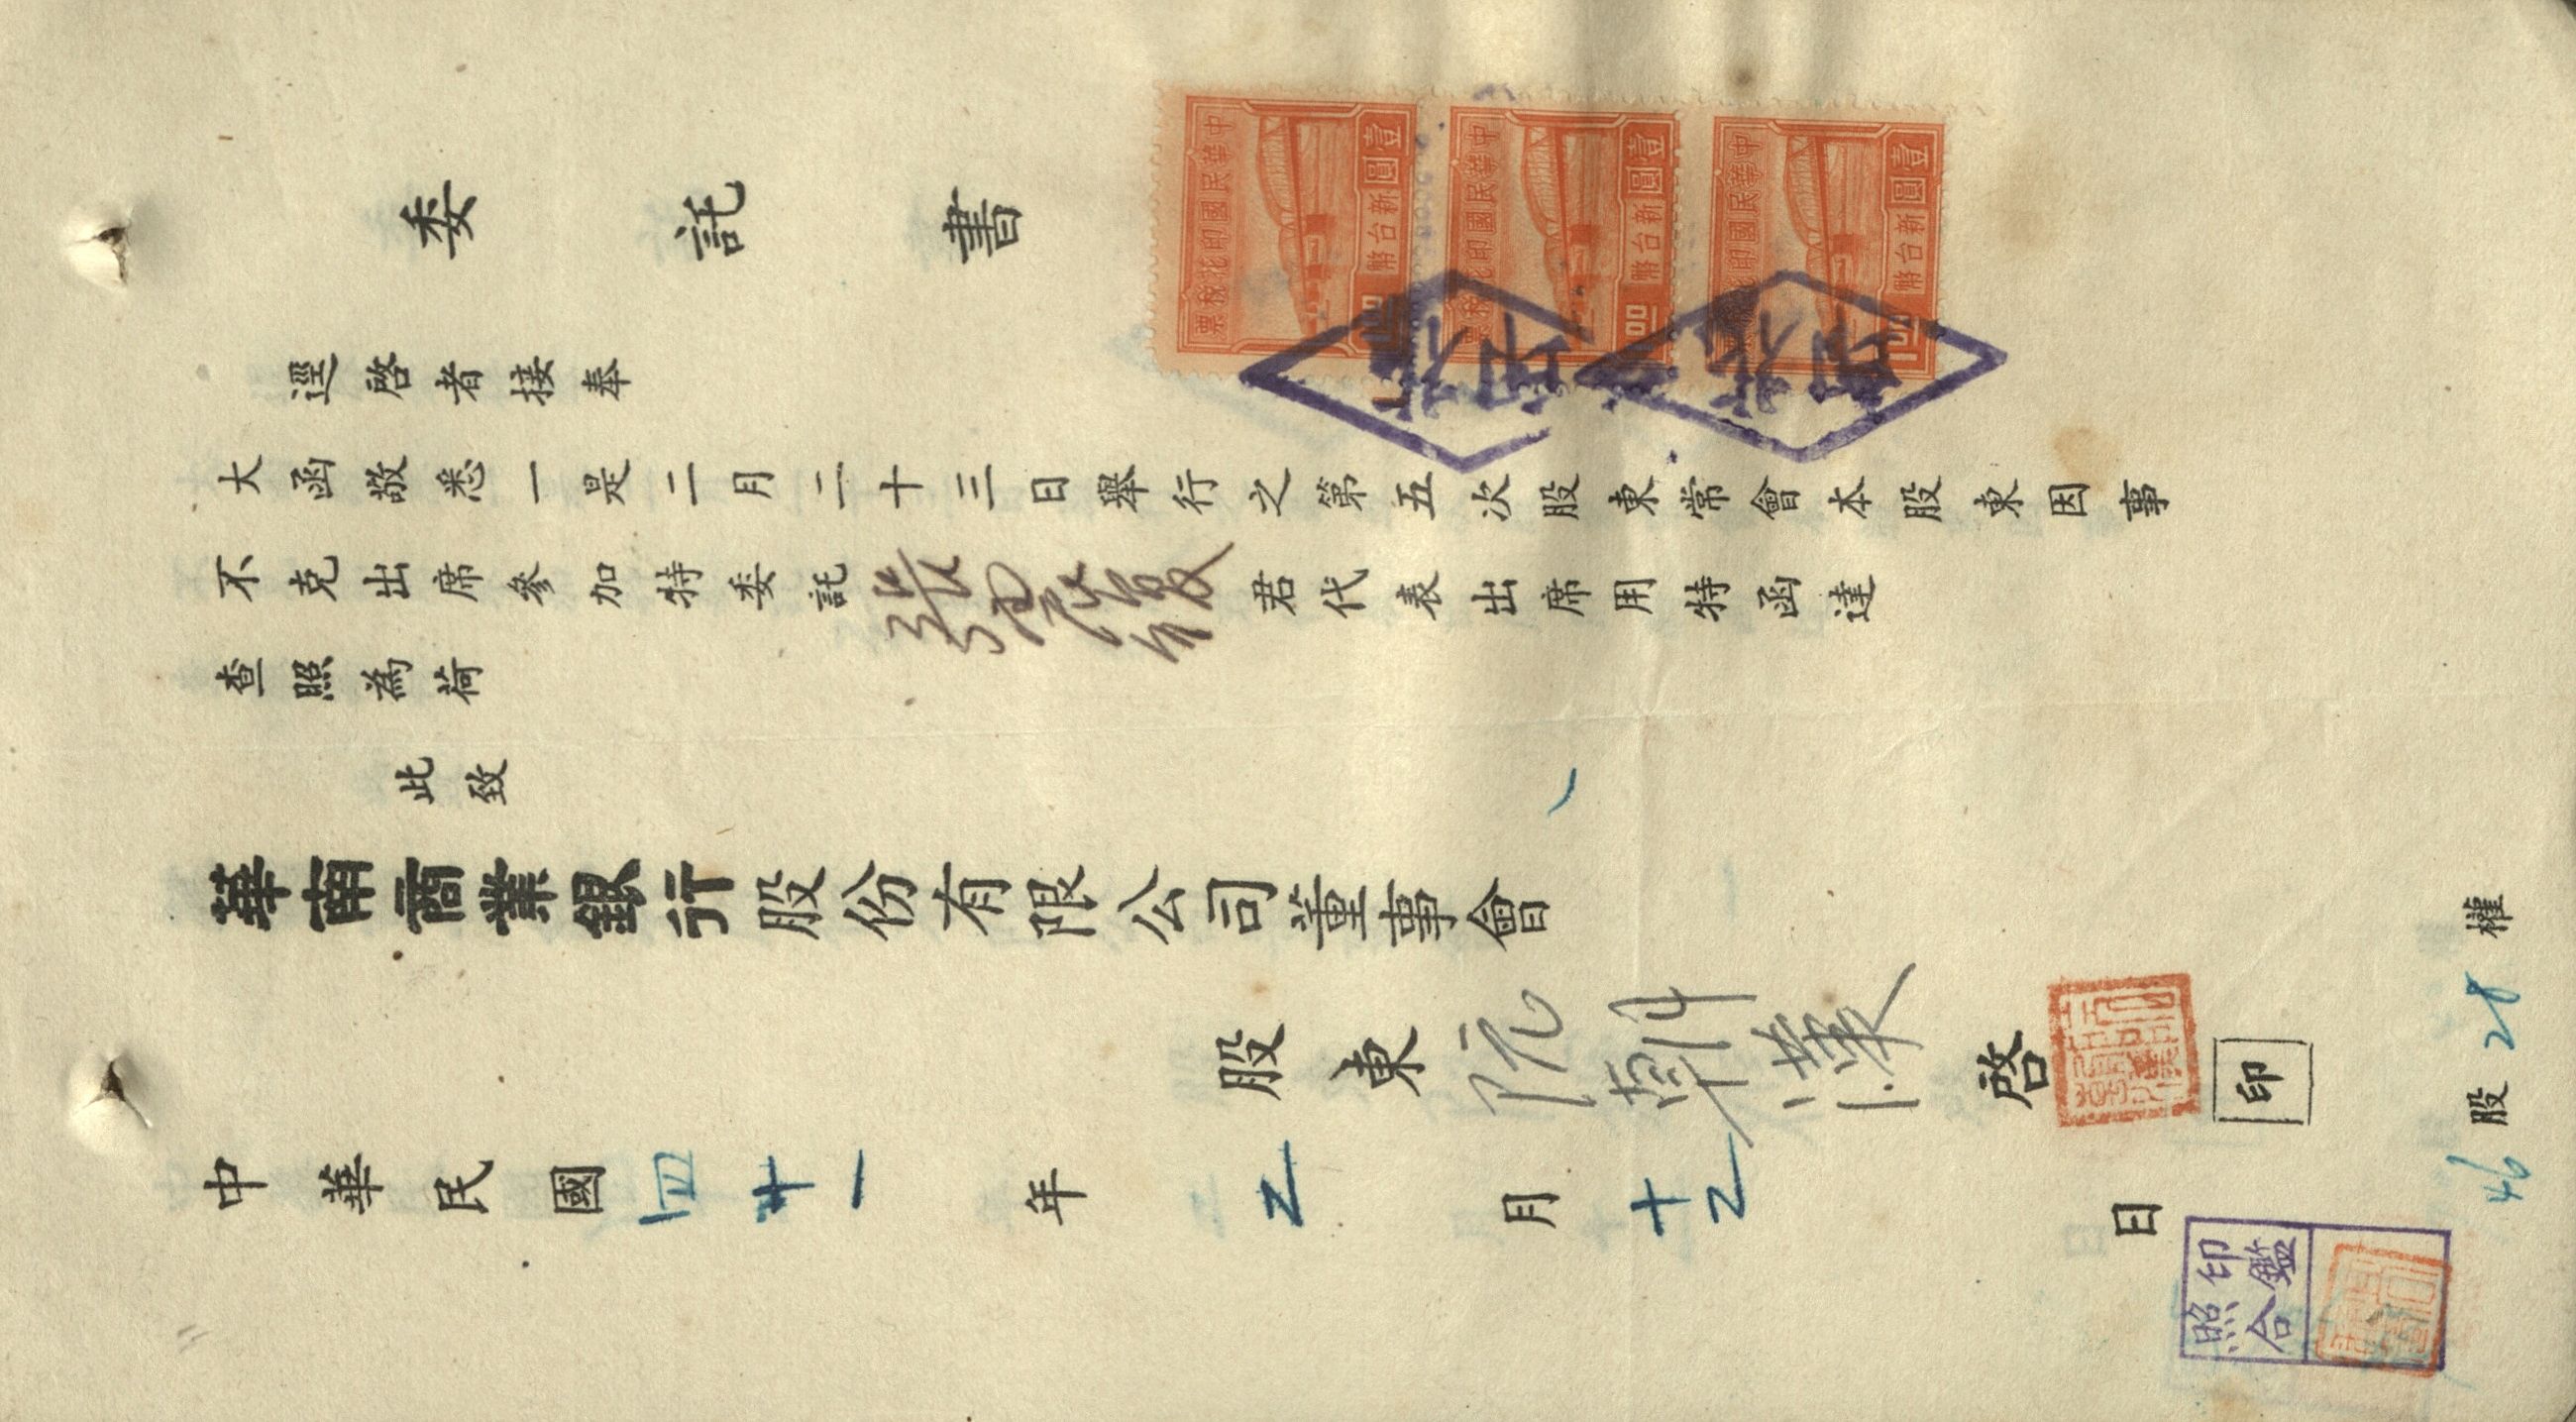 委託書
逕啓者接奉
大函敬悉一是二月二十三日舉行之第五次股東常會本股東因事
不克出席參加特委託張 君代表出席用特函達
查照為荷
此致
華南商業銀行股份有限公司董事會
股東阮朝漢啓
印
中華民國四十一年2月十2日
46股28權
印鑑
照合
中華民國印花稅票
壹圓
新台幣
1.00
中華民國印花稅票
壹圓
新台幣
1.00
中華民國印花稅票
壹圓
新台幣
1.00